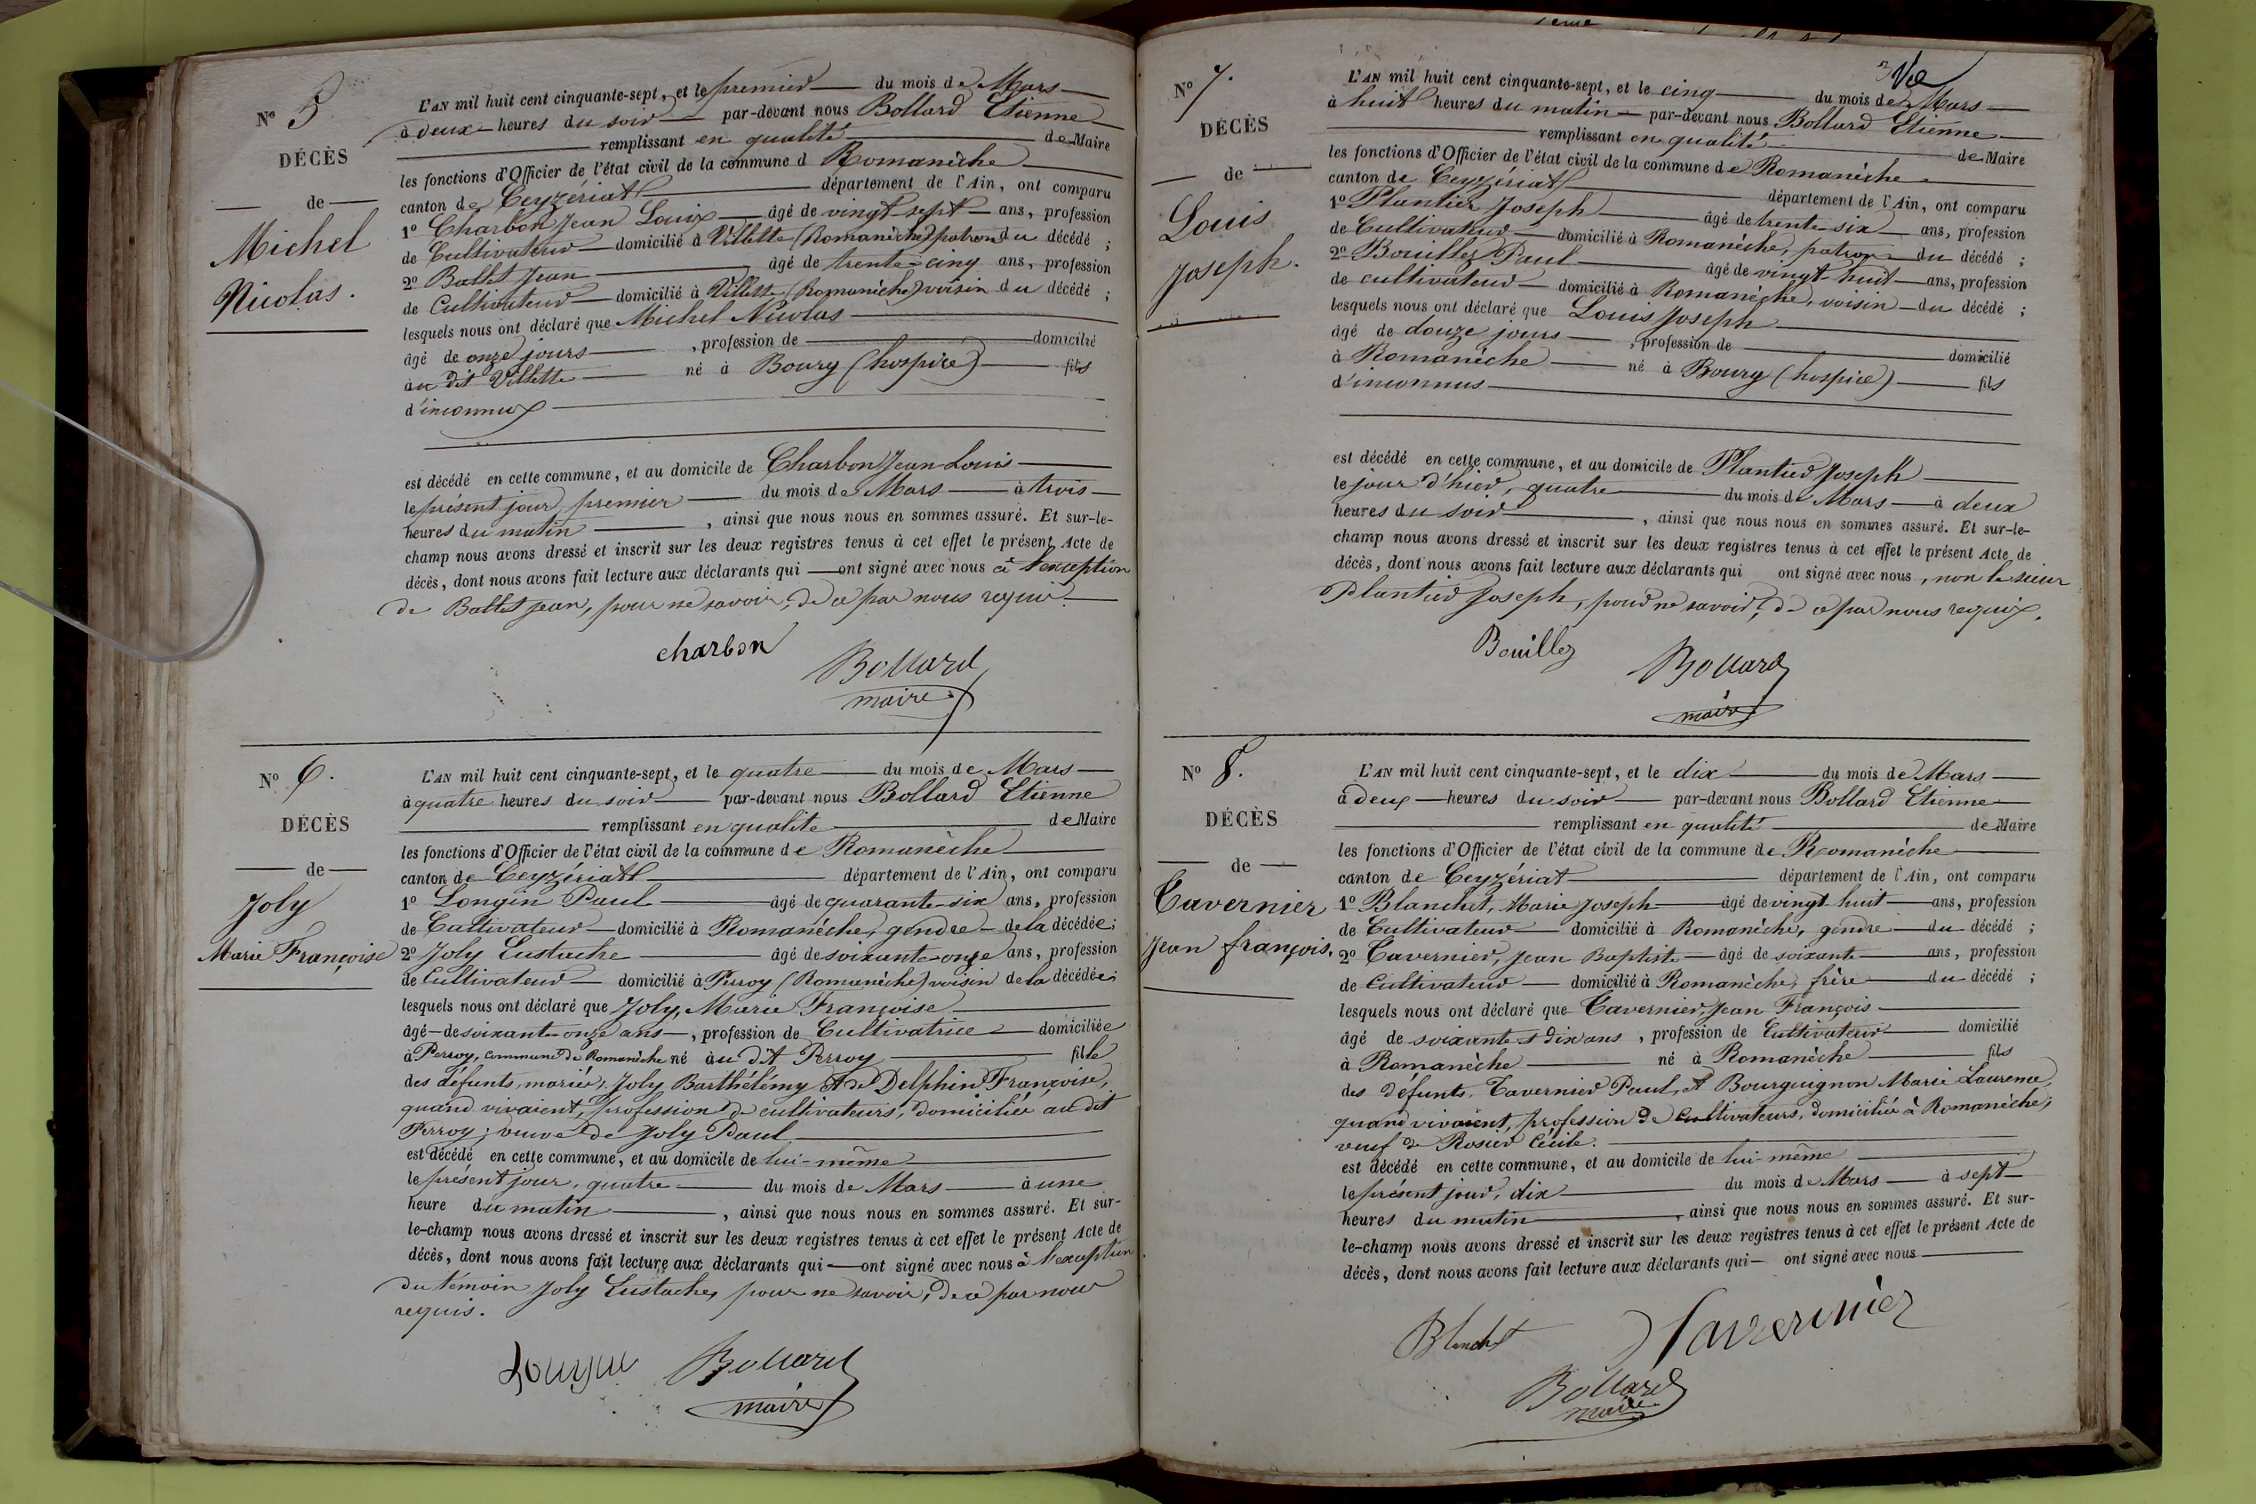 N° 5
DÉCÈS
de
Michel
Nicolas.
L'AN mil huit cent cinquante-sept, et le premier du mois de Mars
à deux heures du soir par-devant nous Bollard Etienne
remplissant en qualité de Maire
les fonctions d'Officier de l'état civil de la commune d Romanèche
canton de Ceyzériat département de l'Ain, ont comparu
1° Charbon Jean Louis âgé de vingt-sept ans, profession
de Cultivateur domicilié à Villette (Romanèche) patron du décédé ;
2° Ballet Jean âgé de trente-cinq ans, profession
de Cultivateur domicilié à Villette (Romanèche) voisin du décédé ;
lesquels nous ont déclaré que Michel Nicolas
âgé de onze jours , profession de domicilié
au dit Villette né à Bourg (hospice) fils
d'inconnus
est décédé en cette commune, et au domicile de Charbon Jean Louis
le présent jour, premier du mois de Mars à trois
heures du matin , ainsi que nous nous en sommes assuré. Et sur-le-
champ nous avons dressé et inscrit sur les deux registres tenus à cet effet le présent Acte de
décès, dont nous avons fait lecture aux déclarants qui ont signé avec nous à l'exception
de Ballet Jean, pour ne savoir, de ce par nous requis.
charbon
Bollard
maire
N° 6.
DÉCÈS
de
Joly
Marie Françoise
L'AN mil huit cent cinquante-sept, et le quatre du mois de Mars
à quatre heures du soir par-devant nous Bollard Etienne
remplissant en qualité de Maire
les fonctions d'Officier de l'état civil de la commune de Romanèche
canton de Ceyzériat département de l'Ain, ont comparu
1° Longin Paul âgé de quarante-six ans, profession
de Cultivateur domicilié à Romanèche, gendre de la décédée ;
2° Joly Eustache âgé de soixante-onze ans, profession
de Cultivateur domicilié à Perroy (Romanèche) voisin de la décédée ;
lesquels nous ont déclaré que Joly, Marie Françoise
âgé de soixant-onze ans , profession de Cultivatrice domiciliée
à Perroy, commune de Romanèche né au dit Perroy fille
des défunts, mariés, Joly Barthélémy et de Delphin Françoise,
quand vivaient, profession de cultivateurs, domiciliée au dit
Perroy ; veuve de Joly Paul
est décédé en cette commune, et au domicile de lui-même
le présent jour, quatre du mois de Mars à une
heure du matin , ainsi que nous nous en sommes assuré. Et sur-
le-champ nous avons dressé et inscrit sur les deux registres tenus à cet effet le présent Acte de
décès, dont nous avons fait lecture aux déclarants qui ont signé avec nous à l'exception
du témoin Joly Eustache, pour ne savoir, de ce par nous
requis.
Bollard
maire
N° 7.
DÉCÈS
de
Louis
Joseph.
L'AN mil huit cent cinquante-sept, et le cinq du mois de Mars
à huit heures du matin par-devant nous Bollard Etienne
remplissant en qualité de Maire
les fonctions d'Officier de l'état civil de la commune de Romanèche
canton de Ceyzériat département de l'Ain, ont comparu
1° Plantier Joseph âgé de trente-six ans, profession
de Cultivateur domicilié à Romanèche, patron du décédé ;
2° Bouillez Paul âgé de vingt-huit ans, profession
de cultivateur domicilié à Romanèche, voisin du décédé ;
lesquels nous ont déclaré que Louis Joseph
âgé de douze jours , profession de domicilié
à Romanèche né à Bourg (hospice) fils
d'inconnus
est décédé en cette commune, et au domicile de Plantier Joseph
le jour d'hier, quatre du mois de Mars à deux
heures du soir , ainsi que nous nous en sommes assuré. Et sur-le-
champ nous avons dressé et inscrit sur les deux registres tenus à cet effet le présent Acte de
décès, dont nous avons fait lecture aux déclarants qui ont signé avec nous, non le sieur
Plantier Joseph, pour ne savoir, de ce par nous requis.
Bouillez
Bollard
maire
N° 8.
DÉCÈS
de
Tavernier
Jean françois,
L'AN mil huit cent cinquante-sept, et le dix du mois de Mars
à deux heures du soir par-devant nous Bollard Etienne
remplissant en qualité de Maire
les fonctions d'Officier de l'état civil de la commune de Romanèche
canton de Ceyzériat département de l'Ain, ont comparu
1° Blanchet, Marie Joseph âgé de vingt-huit ans, profession
de Cultivateur domicilié à Romanèche, gendre du décédé ;
2° Tavernier, Jean Baptiste âgé de soixante ans, profession
de Cultivateur domicilié à Romanèche, frère du décédé ;
lesquels nous ont déclaré que Tavernier, Jean François
âgé de soixante et dix ans , profession de Cultivateur domicilié
à Romanèche né à Romanèche fils
des défunts, Tavernier Paul, et Bourguignon Marie Laurence,
quand vivaient, profession de Cultivateurs, domiciliée à Romanèche,
veuf de Rosier Cécile.
est décédé en cette commune, et au domicile de lui-même
le présent jour, dix du mois de Mars à sept
heures du matin , ainsi que nous nous en sommes assuré. Et sur-
le-champ nous avons dressé et inscrit sur les deux registres tenus à cet effet le présent Acte de
décès, dont nous avons fait lecture aux déclarants qui ont signé avec nous
Blanchet
Tavernier
Bollard
maire